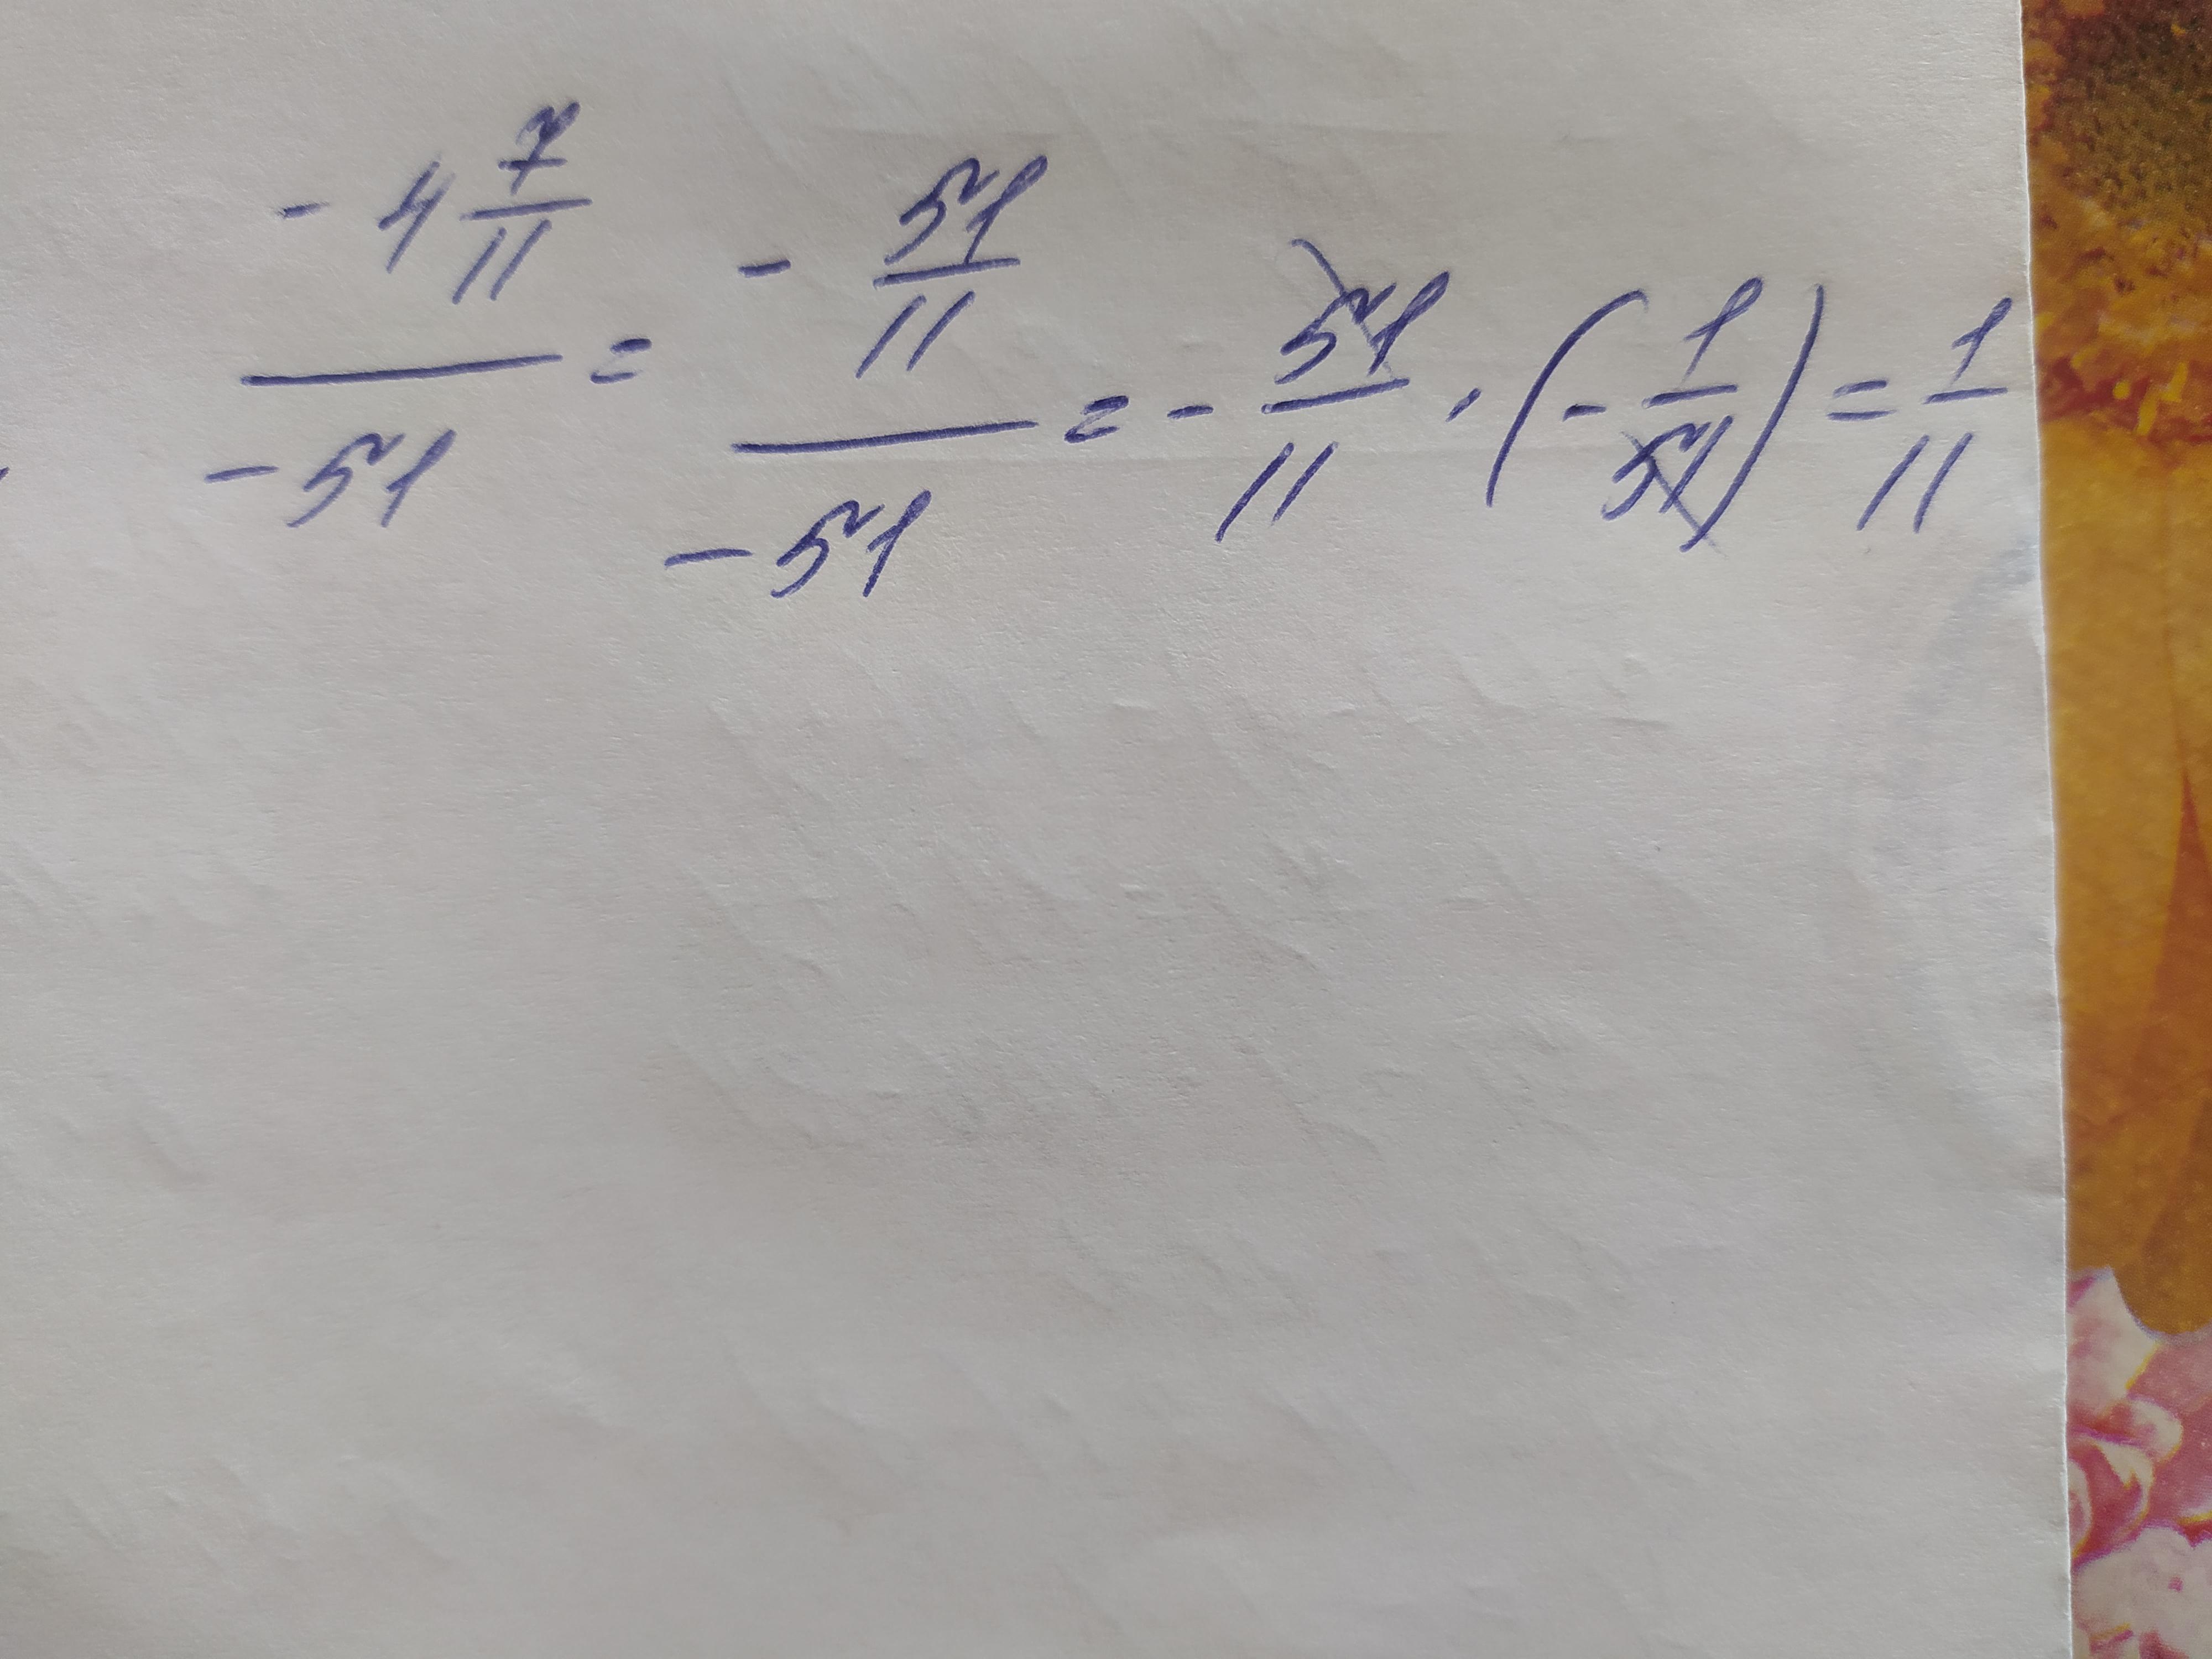 (-4 7/11)/(-51) = (-51/11)/(-51) = - 51/11 · (- 1/51) = 1/11